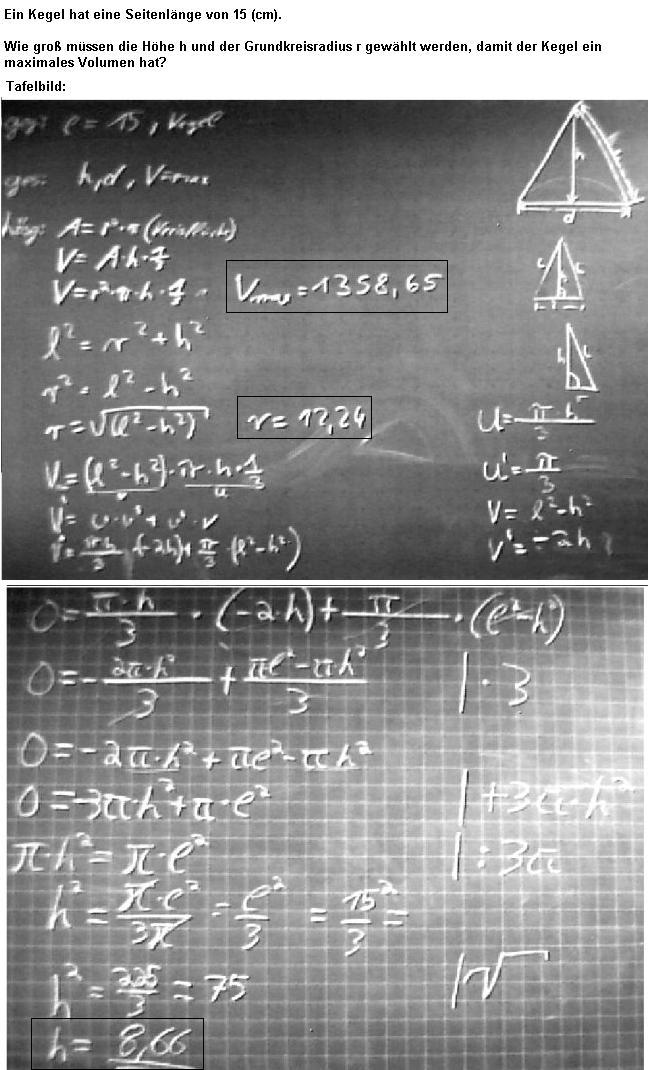 Ein Kegel hat eine Seitenlänge von 15 (cm).
Wie groß müssen die Höhe h und der Grundkreisradius r gewählt werden, damit der Kegel ein
maximales Volumen hat?
Tafelbild:
geg: l = 15, Kegel
ges: h, d, V=max
A = r² · π (Kreisfläche)
V = A · h · 1/3
V = r² · π · h · 1/3
V max = 1358,65
l² = r² + h²
r² = l² - h²
r = √(l² - h²)
r = 12,24
V = (l² - h²) · π · h · 1/3
v u
V' = u · v' + u' · v
V' = π h/3 · (-2h) + π/3 · (l² - h²)
h
d
h
h
u = π · h/3
u' = π/3
v = l² - h²
v' = -2h
0 = π · h/3 · (-2h) + π/3 · (l² - h²)
0 = - 2π · h²/3 + πl² - πh²/3 | · 3
0 = -2π · h² + πl² - πh²
0 = -3π · h² + π · l² | +3π · h²
π · h² = π · l² | : 3π
h² = π · l²/3π = l²/3 = 15²/3 =
h² = 225/3 = 75 | √
h = 8,66